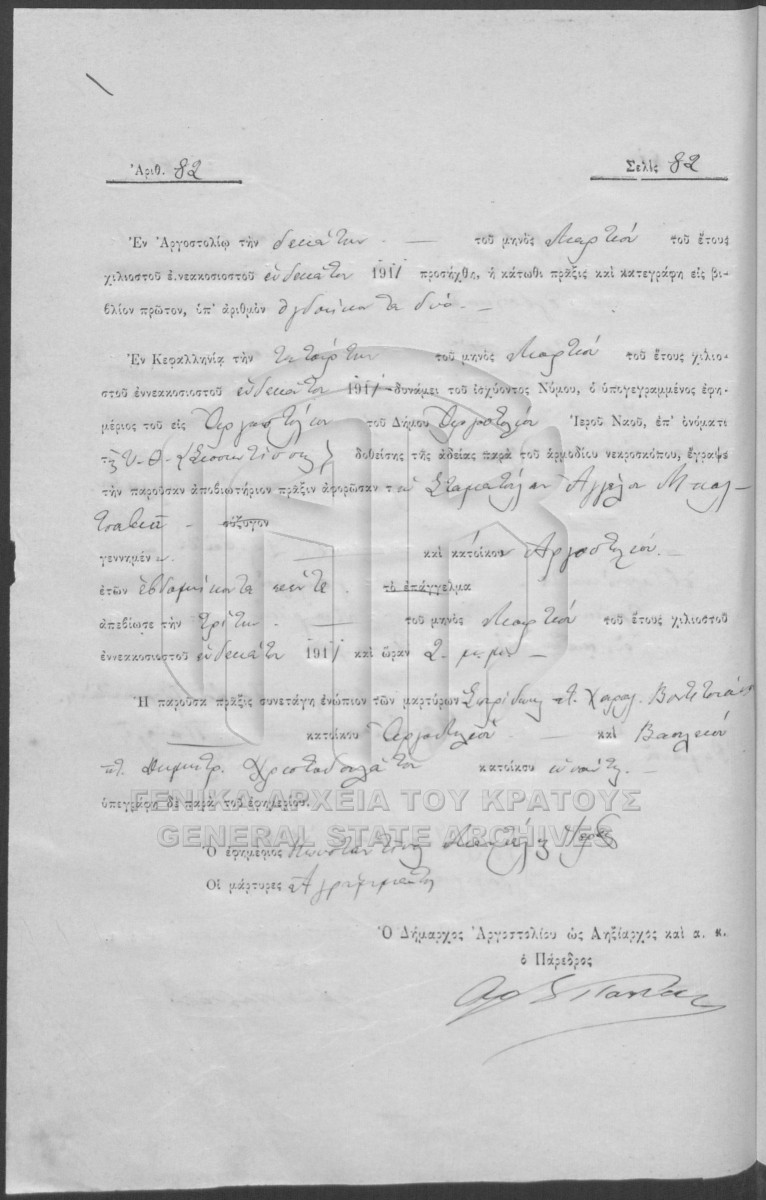 Ἀριθ. 82
Σελὶς 82
Ἐν Ἀργοστολίῳ τὴν δεκάτην — τοῦ μηνὸς Μαρτίου τοῦ ἔτους
χιλιοστοῦ ἐννεακοσιοστοῦ ἑνδεκάτου 1911 προσήχθη, ἡ κάτωθι πρᾶξις καὶ κατεγράφη εἰς βι-
βλίον πρῶτον, ὑπ' ἀριθμὸν ὀγδοήκοντα δύο. —
Ἐν Κεφαλληνίᾳ τὴν τετάρτην τοῦ μηνὸς Μαρτίου τοῦ ἔτους χιλιο-
στοῦ ἐννεκκοσιοστοῦ ἑνδεκάτου 1911 δυνάμει τοῦ ἰσχύοντος Νόμου, ὁ ὑπογεγραμμένος ἐφη-
μέριος τοῦ εἰς Ἀργοστόλιον τοῦ Δήμου Ἀργοστολίου Ἱεροῦ Ναοῦ, ἐπ' ὀνόματι
τῆς Υ. Θ. (Σισσιωτίσσης) δοθείσης τῆς ἀδείας παρὰ τοῦ ἁρμοδίου νεκροσκόπου, ἔγραψε
τὴν παροῦσαν ἀποβιωτήριον πρᾶξιν ἀφορῶσαν τ Σταματούλαν Ἀγγέλου
σύζυγον
γεννημέν — καὶ κατοίκου Ἀργοστολίου. —
ἐτῶν ἑβδομήκοντα πέντε τὸ ἐπάγγελμα
ἀπεβίωσε τὴν τρίτην — τοῦ μηνὸς Μαρτίου τοῦ ἔτους χιλιοστοῦ
ἐννεκκοσιοστοῦ ἑνδεκάτου 1911 καὶ ὥραν 2. μ.μ. —
Ἡ παροῦσα πρᾶξις συνετάγη ἐνώπιον τῶν μαρτύρων Σπυρίδωνος Χαραλ.
κατοίκου Ἀργοστολίου — καὶ Βασιλείου
Δημητρ. Χριστοδουλάτου κατοίκου
ὑπεγράφη δὲ παρὰ τοῦ ἐφημερίου.
ΓΕΝΙΚΑ ΑΡΧΕΙΑ ΤΟΥ ΚΡΑΤΟΥΣ
GENERAL STATE ARCHIVES
Ὁ ἐφημέριος Κωνσταντῖνος
Οἱ μάρτυρες Ἀγράμματοι
Ὁ Δήμαρχος Ἀργοστολίου ὡς Ληξίαρχος καὶ α. κ.
ὁ Πάρεδρος